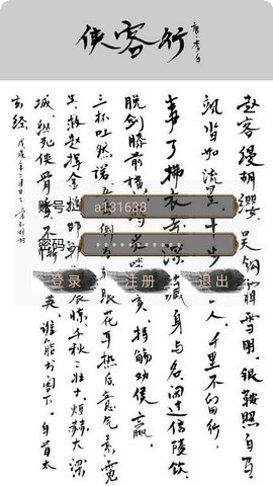 侠客行
唐·李白
赵客缦胡缨吴钩霜雪明银鞍照白马
飒沓如流星十步人千里不留行
事了拂衣去深藏身与名闲过信陵饮
脱剑膝前横亥持觞劝侯嬴
三杯吐然诺五倒眼花耳热后意气素霓
生救赵挥金震惊千秋二壮士烜赫大梁
城纵死侠骨香不英谁能书阁下白首太
玄经
账号:
a131638
密码:
登录
注册
退出